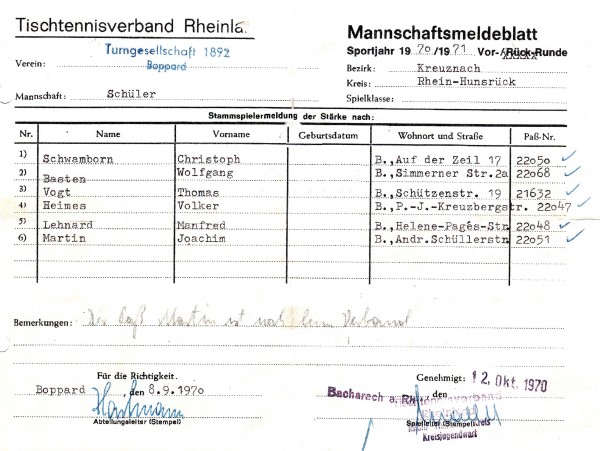 Tischtennisverband Rheinla.
Mannschaftsmeldeblatt
Turngesellschaft 1892
Sportjahr 1970/1971 Vor-/Rück-Runde
Verein: Boppard
Bezirk: Kreuznach
Kreis: Rhein-Hunsrück
Mannschaft: Schüler
Spielklasse:
Stammspielermeldung der Stärke nach:
Nr. Name Vorname Geburtsdatum Wohnort und Straße Paß-Nr.
1) Schwamborn Christoph B.,Auf der Zeil 17 22050
2) Basten Wolfgang B.,Simmerner Str.2a 22068
3) Vogt Thomas B.,Schützenstr. 19 21632
4) Heimes Volker B.,P.-J.-Kreuzbergstr. 22047
5) Lehnard Manfred B.,Helene-Pagés-Str 22048
6) Martin Joachim B.,Andr.Schüllerstr 22051
Bemerkungen: Der Paß Martin ist noch beim Verband
Für die Richtigkeit.
Genehmigt: 12. Okt. 1970
Boppard, den 8.9.1970
Bacharach a. Rh, den
Hartmann
Abteilungsleiter (Stempel)
Spielleiter (Stempel)
Kreisjugendwart